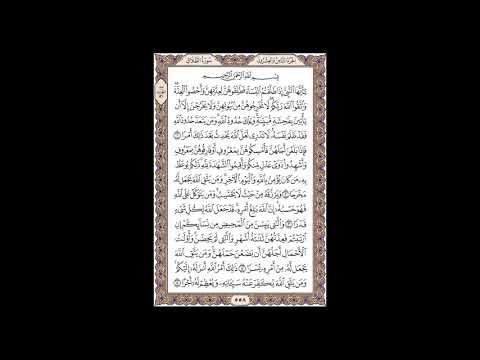 الجزء الثامن والعشرون
سورة الطلاق
بِسْمِ ٱللَّهِ ٱلرَّحْمَٰنِ ٱلرَّحِيمِ
يَٰٓأَيُّهَا ٱلنَّبِيُّ إِذَا طَلَّقْتُمُ ٱلنِّسَآءَ فَطَلِّقُوهُنَّ لِعِدَّتِهِنَّ وَأَحْصُوا۟ ٱلْعِدَّةَ ۖ
وَٱتَّقُوا۟ ٱللَّهَ رَبَّكُمْ ۖ لَا تُخْرِجُوهُنَّ مِنۢ بُيُوتِهِنَّ وَلَا يَخْرُجْنَ إِلَّآ أَن
يَأْتِينَ بِفَٰحِشَةٍ مُّبَيِّنَةٍ ۚ وَتِلْكَ حُدُودُ ٱللَّهِ ۚ وَمَن يَتَعَدَّ حُدُودَ ٱللَّهِ
فَقَدْ ظَلَمَ نَفْسَهُۥ ۚ لَا تَدْرِى لَعَلَّ ٱللَّهَ يُحْدِثُ بَعْدَ ذَٰلِكَ أَمْرًا ١
فَإِذَا بَلَغْنَ أَجَلَهُنَّ فَأَمْسِكُوهُنَّ بِمَعْرُوفٍ أَوْ فَارِقُوهُنَّ بِمَعْرُوفٍ
وَأَشْهِدُوا۟ ذَوَىْ عَدْلٍ مِّنكُمْ وَأَقِيمُوا۟ ٱلشَّهَٰدَةَ لِلَّهِ ۚ ذَٰلِكُمْ يُوعَظُ
بِهِۦ مَن كَانَ يُؤْمِنُ بِٱللَّهِ وَٱلْيَوْمِ ٱلْءَاخِرِ ۚ وَمَن يَتَّقِ ٱللَّهَ يَجْعَل لَّهُۥ
مَخْرَجًا ٢ وَيَرْزُقْهُ مِنْ حَيْثُ لَا يَحْتَسِبُ ۚ وَمَن يَتَوَكَّلْ عَلَى ٱللَّهِ
فَهُوَ حَسْبُهُۥٓ ۚ إِنَّ ٱللَّهَ بَٰلِغُ أَمْرِهِۦ ۚ قَدْ جَعَلَ ٱللَّهُ لِكُلِّ شَىْءٍ
قَدْرًا ٣ وَٱلَّٰٓـِٔى يَئِسْنَ مِنَ ٱلْمَحِيضِ مِن نِّسَآئِكُمْ إِنِ
ٱرْتَبْتُمْ فَعِدَّتُهُنَّ ثَلَٰثَةُ أَشْهُرٍ وَٱلَّٰٓـِٔى لَمْ يَحِضْنَ ۚ وَأُو۟لَٰتُ
ٱلْأَحْمَالِ أَجَلُهُنَّ أَن يَضَعْنَ حَمْلَهُنَّ ۚ وَمَن يَتَّقِ ٱللَّهَ
يَجْعَل لَّهُۥ مِنْ أَمْرِهِۦ يُسْرًا ٤ ذَٰلِكَ أَمْرُ ٱللَّهِ أَنزَلَهُۥٓ إِلَيْكُمْ ۚ
وَمَن يَتَّقِ ٱللَّهَ يُكَفِّرْ عَنْهُ سَيِّـَٔاتِهِۦ وَيُعْظِمْ لَهُۥٓ أَجْرًا ٥
٥٥٨